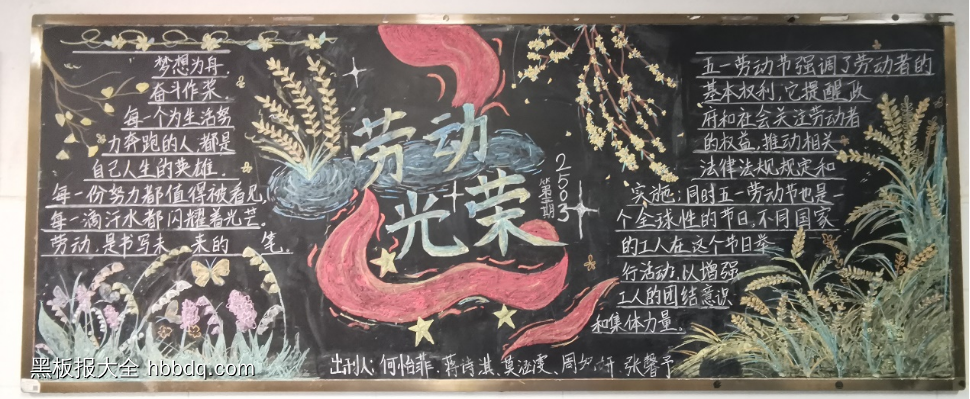 梦想为舟
奋斗作桨.
每一个为生活努
力奔跑的人,都是
自己人生的英雄.
每一份努力都值得被看见,
每一滴汗水都闪耀着光芒.
劳动,是书写未 来的 笔.
劳动
光荣
2503
第 期
五一劳动节强调了劳动者的
基本权利,它提醒政
府和社会关注劳动者
的权益,推动相关
法律法规规定和
实施;同时五一劳动节也是一
个全球性的节日,不同国家
的工人在这个节日举
行活动,以增强
工人的团结意识
和集体力量.
出刊人:何怡菲、蒋诗淇、莫涵 、周 妍、张馨予
黑板报大全 hbbdq.com